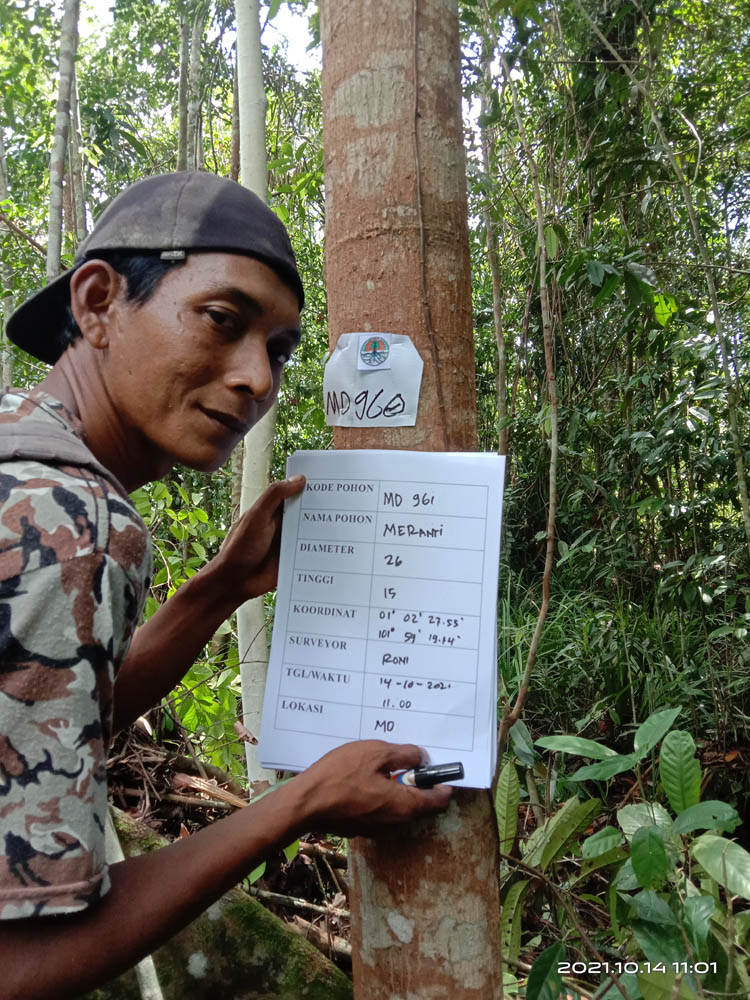 MD 960
KODE POHON MD 961
NAMA POHON MERANTI
DIAMETER 26
TINGGI 15
KOORDINAT 01° 02' 27.55'
101° 59' 19.14'
SURVEYOR RONI
TGL/WAKTU 14-10-2021
11.00
LOKASI MD
2021.10.14 11:01